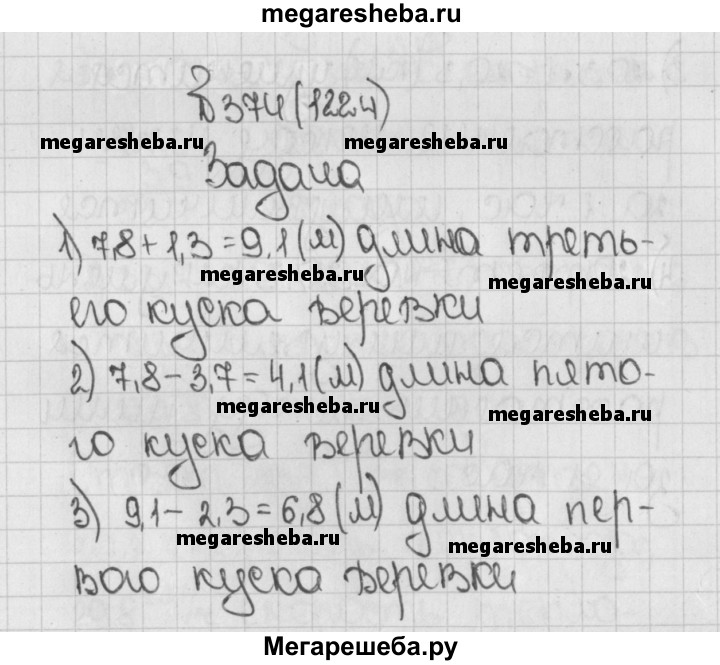 megaresheba.ru
№ 374 (1224)
megaresheba.ru megaresheba.ru
Задача
1) 7,8 + 1,3 = 9,1 (м) длина треть-
megaresheba.ru megaresheba.ru
его куска веревки
2) 7,8 - 3,7 = 4,1 (м) длина пято-
megaresheba.ru megaresheba.ru
го куска веревки
3) 9,1 - 2,3 = 6,8 (м) длина пер-
megaresheba.ru megaresheba.ru
вого куска веревки
Мегарешеба.ру